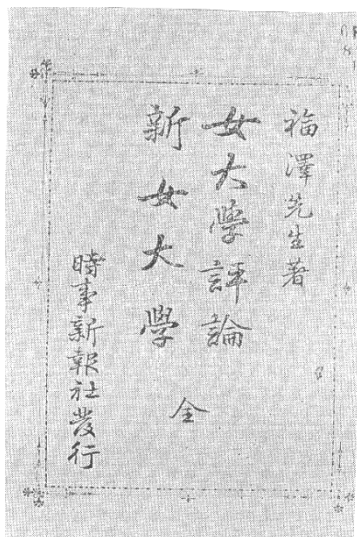 福澤先生著
女大學評論
新女大學
全
時事新報社發行